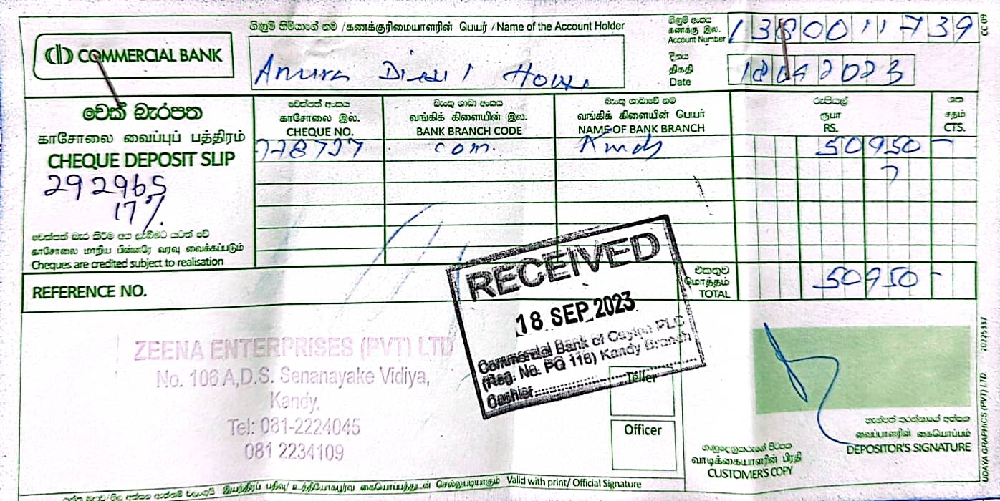 ගිණුම් හිමියාගේ නම / கணக்குரிமையாளரின் பெயர் / Name of the Account Holder
COMMERCIAL BANK
Anura Diesel House
ගිණුම් අංකය
கணக்கு இல.
Account Number
1380011739
දිනය
திகதி
Date
18092023
චෙක් බැරපත
காசோலை வைப்புப் பத்திரம்
CHEQUE DEPOSIT SLIP
292965
17%
චෙක්පත් අංකය
காசோலை இல.
CHEQUE NO.
බැංකු ශාඛා අංකය
வங்கிக் கிளையின் இல.
BANK BRANCH CODE
බැංකු ශාඛාවේ නම
வங்கிக் கிளையின் பெயர்
NAME OF BANK BRANCH
රුපියල්
ரூபா
RS.
ශත
சதம்
CTS.
778727 com. Kandy 50950 -
Cheques are credited subject to realisation
REFERENCE NO.
එකතුව
மொத்தம்
TOTAL
50950 -
RECEIVED
18 SEP 2023
Commercial Bank of Ceylon PLC
(Reg. No. PQ 116) Kandy Branch
Cashier
Teller
Officer
ZEENA ENTERPRISES (PVT) LTD
No. 106 A,D.S. Senanayake Vidiya,
Kandy.
Tel: 081-2224045
081 2234109
வாடிக்கையாளரின் பிரதி
CUSTOMER'S COPY
வைப்பாளரின் கையொப்பம்
DEPOSITOR'S SIGNATURE
Valid with print/ Official Signature